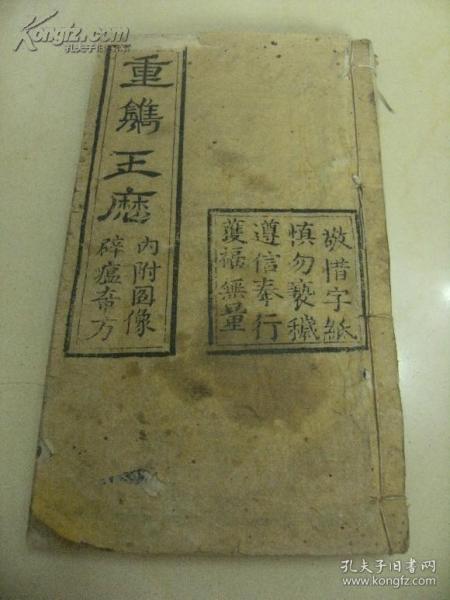 Kongfz.com
孔夫子旧书网
敬惜字紙
慎勿褻穢
遵信奉行
獲福無量
重鐫玉歷
內附圖像
辟瘟奇方
孔夫子旧书网
www.kongfz.com